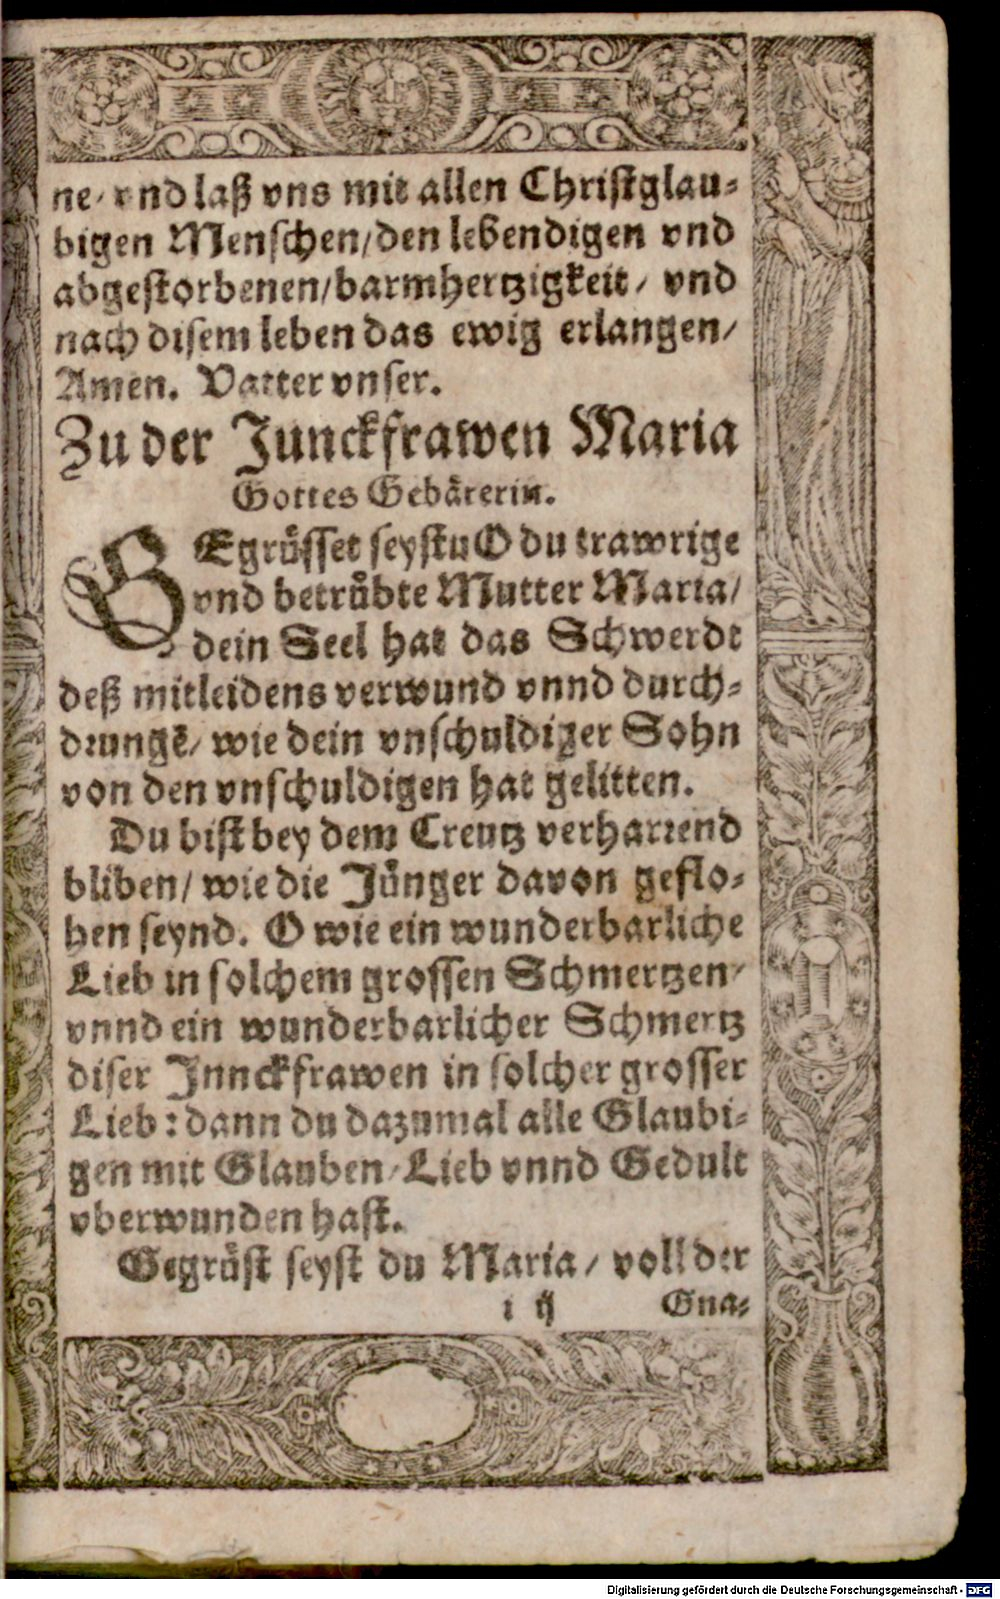 ne/ vnd laß vns mit allen Christglau-
bigen Menschen/den lebendigen vnd
abgestorbenen/barmhertzigkeit/ vnd
nach disem leben das ewig erlangen/
Amen. Vatter vnser.
Zu der Junckfrawen Maria
Gottes Gebärerin.
GEgrüsset seystu O du trawrige
vnd betrůbte Mutter Maria/
dein Seel hat das Schwerdt
deß mitleidens verwund vnnd durch-
drungē/ wie dein vnschuldiger Sohn
von den vnschuldigen hat gelitten.
Du bist bey dem Creutz verharrend
bliben/ wie die Jünger davon geflo-
hen seynd. O wie ein wunderbarliche
Lieb in solchem grossen Schmertzen/
vnnd ein wunderbarlicher Schmertz
diser Jnnckfrawen in solcher grosser
Lieb: dann du dazumal alle Glaubi-
gen mit Glauben/Lieb vnnd Gedult
vberwunden hast.
Gegrüst seyst du Maria/ voll der
i ij Gna-
Digitalisierung gefördert durch die Deutsche Forschungsgemeinschaft - DFG